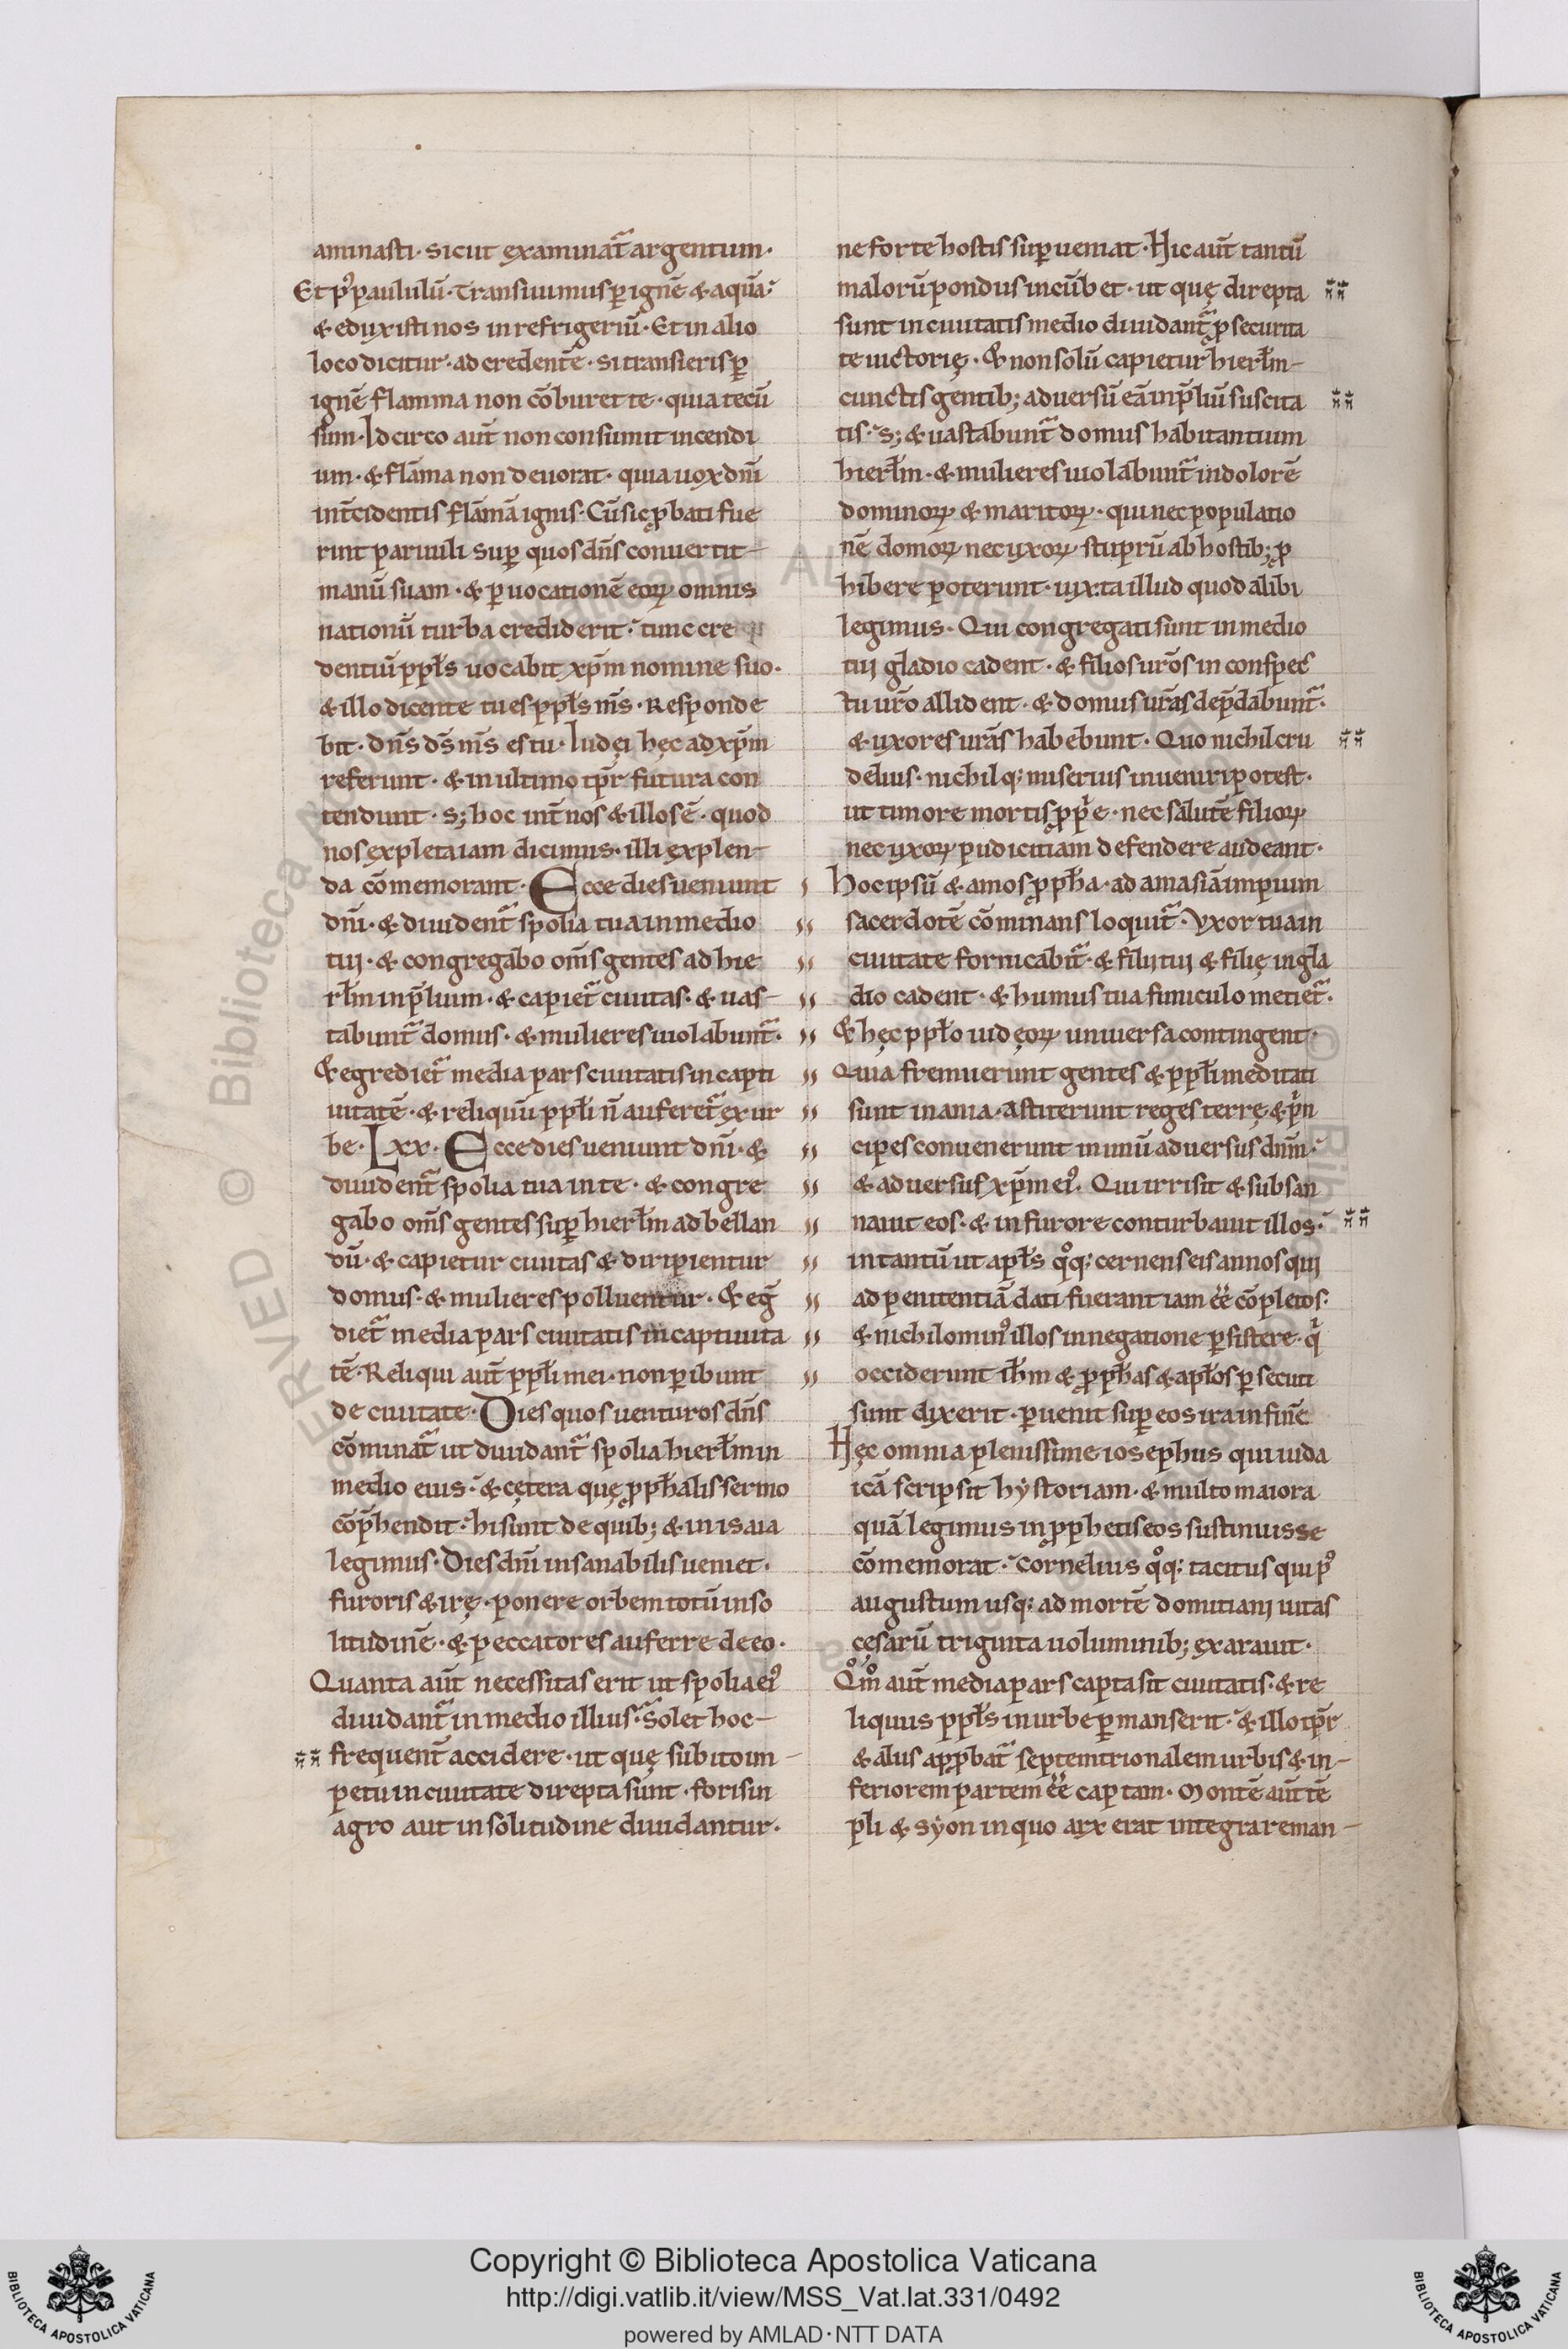 aminasti· sicut examinat᷑ argentum·
Et pꝰ paululū· Transiuimus ꝑ ignē & aquā·
& eduxisti nos in refrigeriū· Et in alio
loco dicitur· ad credentē· si transieris ꝑ
ignē flamma non cōburet te· quia tecū
sum· Idcirco aut̄ non consumit incendi
um· & flāma non deuorat· quia uox dn̄i
int̄cidentis flāmā ignis· Cū sic ꝓbati fue
rint paruuli suꝑ quos dn̄s conuertit
manū suam· & ꝑ uocationē eoꝝ omnis
nationū turba crediderit· tunc cre
dentiū ppl̄s uocabit xp̄m nomine suo·
& illo dicente tu es ppl̄s m̄s· Responde
bit· dn̄s ds̄ m̄s es tu· Iudęi hęc ad xp̄m
referunt· & in ultimo tp̄r futura con
tendunt· s; hoc int̄ nos & illos ē· quod
nos expleta iam dicimus· illi explen
da cōmemorant· Ecce dies ueniunt
dn̄i· & diuident᷑ spolia tua in medio
tui· & congregabo om̄s gentes ad hie
rl̄m in p̄lium· & capiet᷑ ciuitas· & uas
tabunt᷑ domus· & mulieres uiolabunt᷑·
& egrediet᷑ media pars ciuitatis in capti
uitatē· & reliquiū ppl̄i n̄ auferet᷑ ex ur
be· Lxx· Ecce dies ueniunt dn̄i· &
diuident᷑ spolia tua in te· & congre
gabo om̄s gentes suꝑ hierl̄m ad bellan
dū· & capietur ciuitas & diripientur
domus· & mulieres polluentur· & eḡ
diet᷑ media pars ciuitatis in captiuita
tē· Reliqui aut̄ ppl̄i mei· non ꝑibunt
de ciuitate· Dies quos uenturos dn̄s
cōminat᷑ ut diuidant᷑ spolia hierl̄m in
medio eius· & cętera quę ꝓph̄alis sermo
cōp̄hendit· hi sunt de quib; & in isaia
legimus· Dies dn̄i insanabilis ueniet·
furoris & irę· ponere orbem totū in so
litudinē· & peccatores auferre de eo·
Quanta aut̄ necessitas erit ut spolia eiꝰ
diuidant᷑ in medio illius· Solet hoc
frequent̄ accidere· ut quę subito im
petu in ciuitate direpta sunt· foris in
agro aut in solitudine diuidantur·
ne forte hostis suꝑueniat· Hic aut̄ tantū
malorū pondus incūbet· ut quę direpta
sunt in ciuitatis medio diuidant᷑ ꝓ securita
te uictorię· & non solū capietur hierl̄m
cunctis gentib; aduersū eā in p̄liū suscita
tis· s; & uastabunt᷑ domus habitantium
hierl̄m· & mulieres uiolabunt᷑ in dolorē
dominoꝝ & maritoꝝ· qui nec populatio
nē domoꝝ nec uxoꝝ stuprū ab hostib; ꝓ
hibere poterunt· iuxta illud quod alibi
legimus· Qui congregati sunt in medio
tui gladio cadent· & filios ur̄os in conspec
tu ur̄o allident· & domus ur̄as dep̄dabunt᷑·
& uxores ur̄as habebunt· Quo nichil cru
delius· nichilq; miserius inueniri potest·
ut timore mortis ꝓprię· nec salutē filioꝝ
nec uxoꝝ pudicitiam defendere audeant·
Hoc ipsū & amos ꝓph̄a· ad amasiā impium
sacerdotē cōminans loquit᷑· Vxor tua in
ciuitate fornicabit᷑· & filij tui & filię in gla
dio cadent· & humus tua funiculo metiet᷑·
& hęc ppl̄o iudęoꝝ uniuersa contingent·
Quia fremuerunt gentes & ppl̄i meditati
sunt inania· astiterunt reges terrę & prin
cipes conuenerunt in unū aduersus dn̄m·
& aduersus xp̄m eiꝰ· Qui irrisit & subsan
nauit eos· & in furore conturbauit illos·
in tantū ut apl̄s qͦq; cernens eis annos qui
ad penitentiā dati fuerant iam ee᷑ cōpletos·
& nichilominꝰ illos in negatione ꝑsistere· qi
occiderunt ih̄m & ꝓph̄as & apl̄os ꝑsecuti
sunt dixerit· ꝑuenit suꝑ eos ira in finē
Hęc omnia plenissime iosephus qui iuda
icā scripsit hẏstoriam· & multo maiora
quā legimus in ꝓphetis eos sustinuisse
cōmemorat· Cornelius qͦq; tacitus qui pꝰ
augustum usq; ad mortē domitiani uitas
cęsarū triginta uoluminib; exarauit·
Qͦmͦ aut̄ media pars capta sit ciuitatis· & re
liquus ppl̄s in urbe ꝑmanserit· & illo tp̄r
& alus apꝓbat᷑ septemtrionalem urbis & in
feriorem partem ee᷑ captam· Montē aut̄ tē
pli & sẏon in quo arx erat integra reman
Copyright © Biblioteca Apostolica Vaticana
http://digi.vatlib.it/view/MSS_Vat.lat.331/0492
powered by AMLAD·NTT DATA
BIBLIOTECA APOSTOLICA VATICANA
BIBLIOTECA APOSTOLICA VATICANA